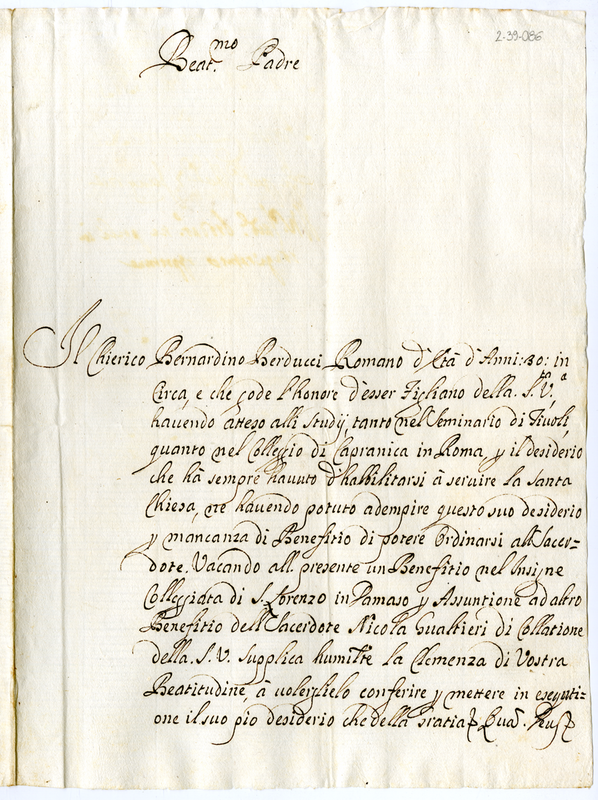 2-39-086
Beat.mo Padre
Il Chierico Bernardino Berducci Romano d'Età d'Anni:30: in
Circa, e che gode l'honore d'esser Figliano della. S.tà V.a
havendo atteso alli Studij, tanto nel Seminario di Tivoli,
quanto nel Collegio di Capranica in Roma, y il desiderio
che hà sempre havuto d'habbilitarsi à seruire la Santa
Chiesa, ne havendo potuto adempire questo suo desiderio
y mancanza di Benefitio di potere Ordinarsi alt Sacer=
dote. Vacando all. presente un Benefitio nel Insigne
Collegiata di S. Lorenzo in Damaso y Assuntione ad altro
Benefitio dell Sacerdote Nicola Gualtieri di Collatione
della. S. V. supplica humilte la Clemenza di Vostra
Beatitudine, à volerglielo conferire y mettere in esequti=
one il suo pio desiderio che della Gratia Quã. Deus